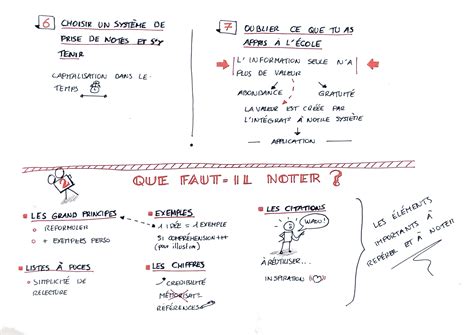 6 CHOISIR UN SYSTÈME DE
PRISE DE NOTES ET S'Y
TENIR
CAPITALISATION DANS LE
TEMPS
7 OUBLIER CE QUE TU AS
APPRIS À L'ÉCOLE
L'INFORMATION SEULE N'A
PLUS DE VALEUR
ABONDANCE
GRATUITÉ
LA VALEUR EST CRÉÉE PAR
L'INTÉGRAT° À NOTRE SYSTÈME
APPLICATION
2
QUE FAUT-IL NOTER ?
LES GRAND PRINCIPES
REFORMULER
+ EXEMPLES PERSO
LISTES À PUCES
SIMPLICITÉ DE
RELECTURE
EXEMPLES
1 IDÉE = 1 EXEMPLE
SI COMPRÉHENSION +++
LES CHIFFRES
CRÉDIBILITÉ
MÉMORISAT°
RÉFÉRENCES
LES CITATIONS
WAOU!
À RÉUTILISER...
INSPIRATION
LES ÉLÉMENTS
IMPORTANTS À
REPÉRER ET À NOTER